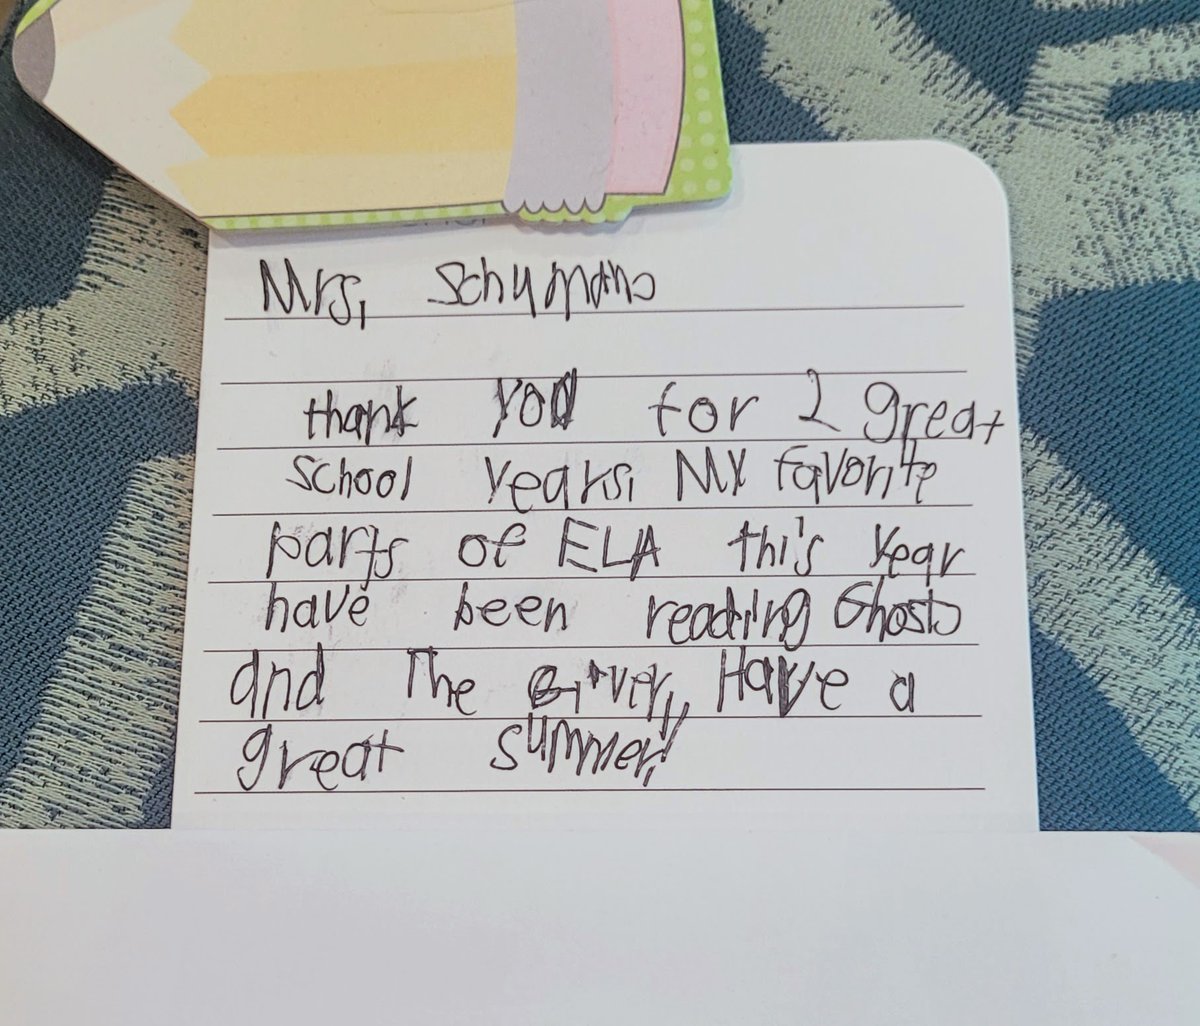 Mrs, Schumann
thank you for 2 great
school years, My favorite
parts of ELA this year
have been reading Ghosts
and The Giver,, Have a
great summer!